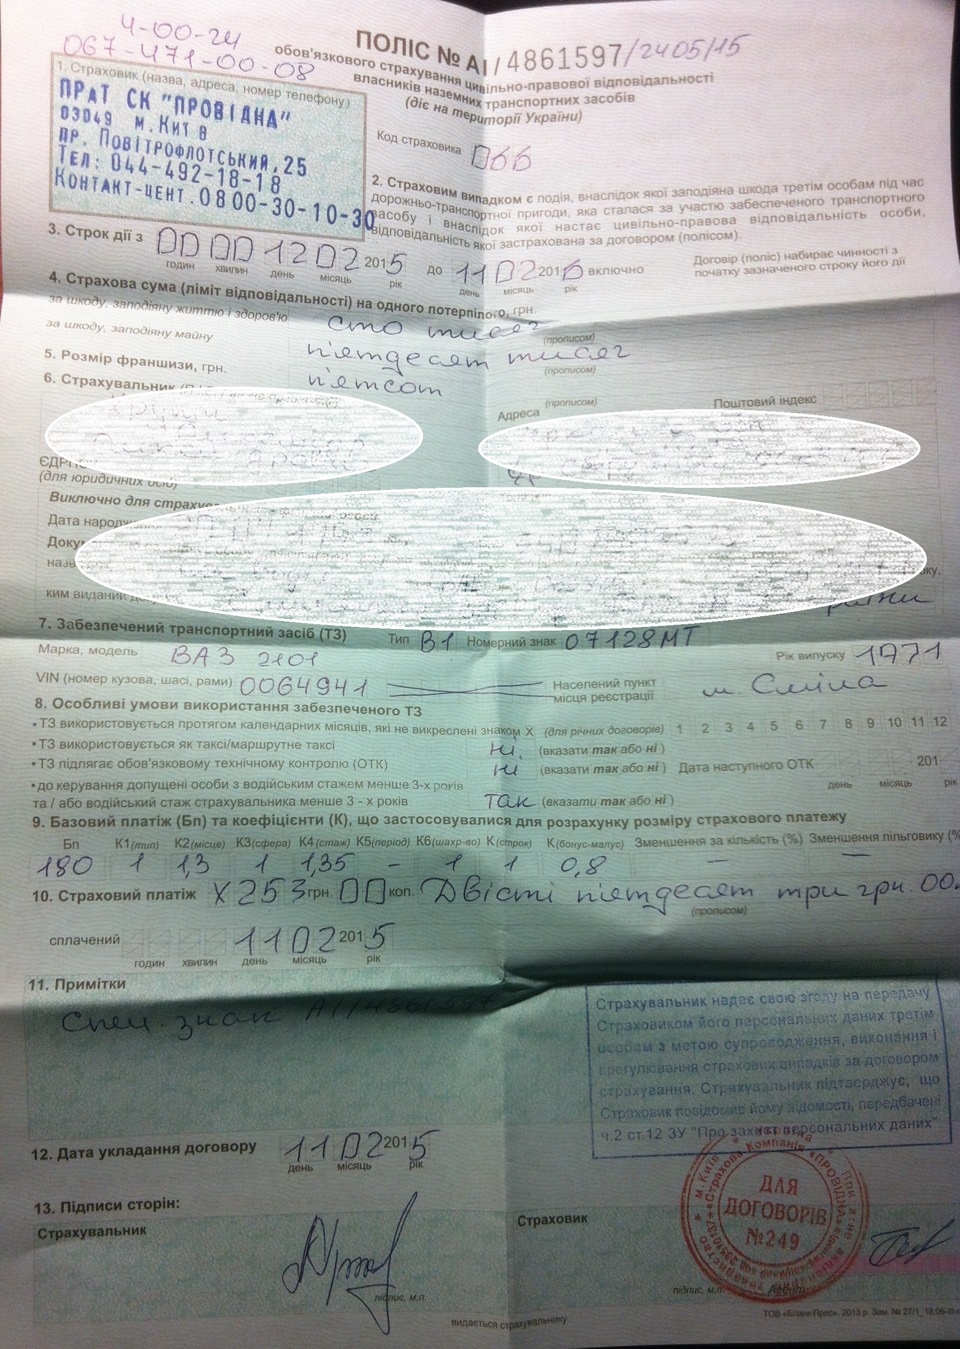 4-00-24
067-471-00-08
ПОЛІС № АІ/4861597/2405/15
обов'язкового страхування цивільно-правової відповідальності
власників наземних транспортних засобів
(діє на території України)
1. Страховик (назва, адреса, номер телефону)
ПРАТ СК "ПРОВІДНА"
03049 М.КИЇВ
ПР. ПОВІТРОФЛОТСЬКИЙ,25
ТЕЛ: 044-492-18-18
КОНТАКТ-ЦЕНТ.0800-30-10-30
Код страховика 066
2. Страховим випадком є подія, внаслідок якої заподіяна шкода третім особам під час
дорожньо-транспортної пригоди, яка сталася за участю забезпеченого транспортного
засобу і внаслідок якої настає цивільно-правова відповідальність особи,
відповідальність якої застрахована за договором (полісом).
3. Строк дії з 00 00 12 02 2015 до 11 02 2016 включно
годин хвилин день місяць рік день місяць рік
Договір (поліс) набирає чинності з
початку зазначеного строку його дії
4. Страхова сума (ліміт відповідальності) на одного потерпілого, грн.
за шкоду, заподіяну життю і здоров'ю сто тисяч
(прописом)
за шкоду, заподіяну майну п'ятдесят тисяч
(прописом)
5. Розмір франшизи, грн. п'ятсот
(прописом)
6. Страхувальник
Адреса
Поштовий індекс
(для юридичних осіб)
Виключно для
Дата
ким виданий
7. Забезпечений транспортний засіб (ТЗ) Тип В1 Номерний знак 07128МТ
Марка, модель ВАЗ 2101 Рік випуску 1971
VIN (номер кузова, шасі, рами) 0064941 Населений пункт
місця реєстрації м. Сміла
8. Особливі умови використання забезпеченого ТЗ
• ТЗ використовується протягом календарних місяців, які не викреслені знаком X (для річних договорів) 1 2 3 4 5 6 7 8 9 10 11 12
• ТЗ використовується як таксі/маршрутне таксі ні (вказати так або ні)
• ТЗ підлягає обов'язковому технічному контролю (ОТК) ні (вказати так або ні) Дата наступного ОТК 201
день місяць рік
• до керування допущені особи з водійським стажем менше 3-х років
та / або водійський стаж страхувальника менше 3 - х років так (вказати так або ні)
9. Базовий платіж (Бп) та коефіцієнти (К), що застосовувалися для розрахунку розміру страхового платежу
Бп К1(тип) К2(місце) К3(сфера) К4(стаж) К5(період) К6(шахр-во) К(строк) К(бонус-малус) Зменшення за кількість (%) Зменшення пільговику (%)
180 1 1,3 1 1,35 – 1 1 0,8 – –
10. Страховий платіж X 253 грн. 00 коп. Двісті п'ятдесят три грн. 00
(прописом)
сплачений 11 02 2015
годин хвилин день місяць рік
11. Примітки
Спец. знак АІ/4861597
Страхувальник надає свою згоду на передачу
Страховиком його персональних даних третім
особам з метою супроводження, виконання і
врегулювання страхових випадків за договором
страхування. Страхувальник підтверджує, що
Страховик повідомив йому відомості, передбачені
ч.2 ст.12 ЗУ "Про захист персональних даних"
12. Дата укладання договору 11 02 2015
день місяць рік
13. Підписи сторін:
Страхувальник
Страховик
ДЛЯ
ДОГОВОРІВ
№249
підпис, м.п.
підпис, м.п.
видається страхувальнику
ТОВ «Бланк-Прес», 2013 р. Зам. № 27/1_18.06-ІІІ